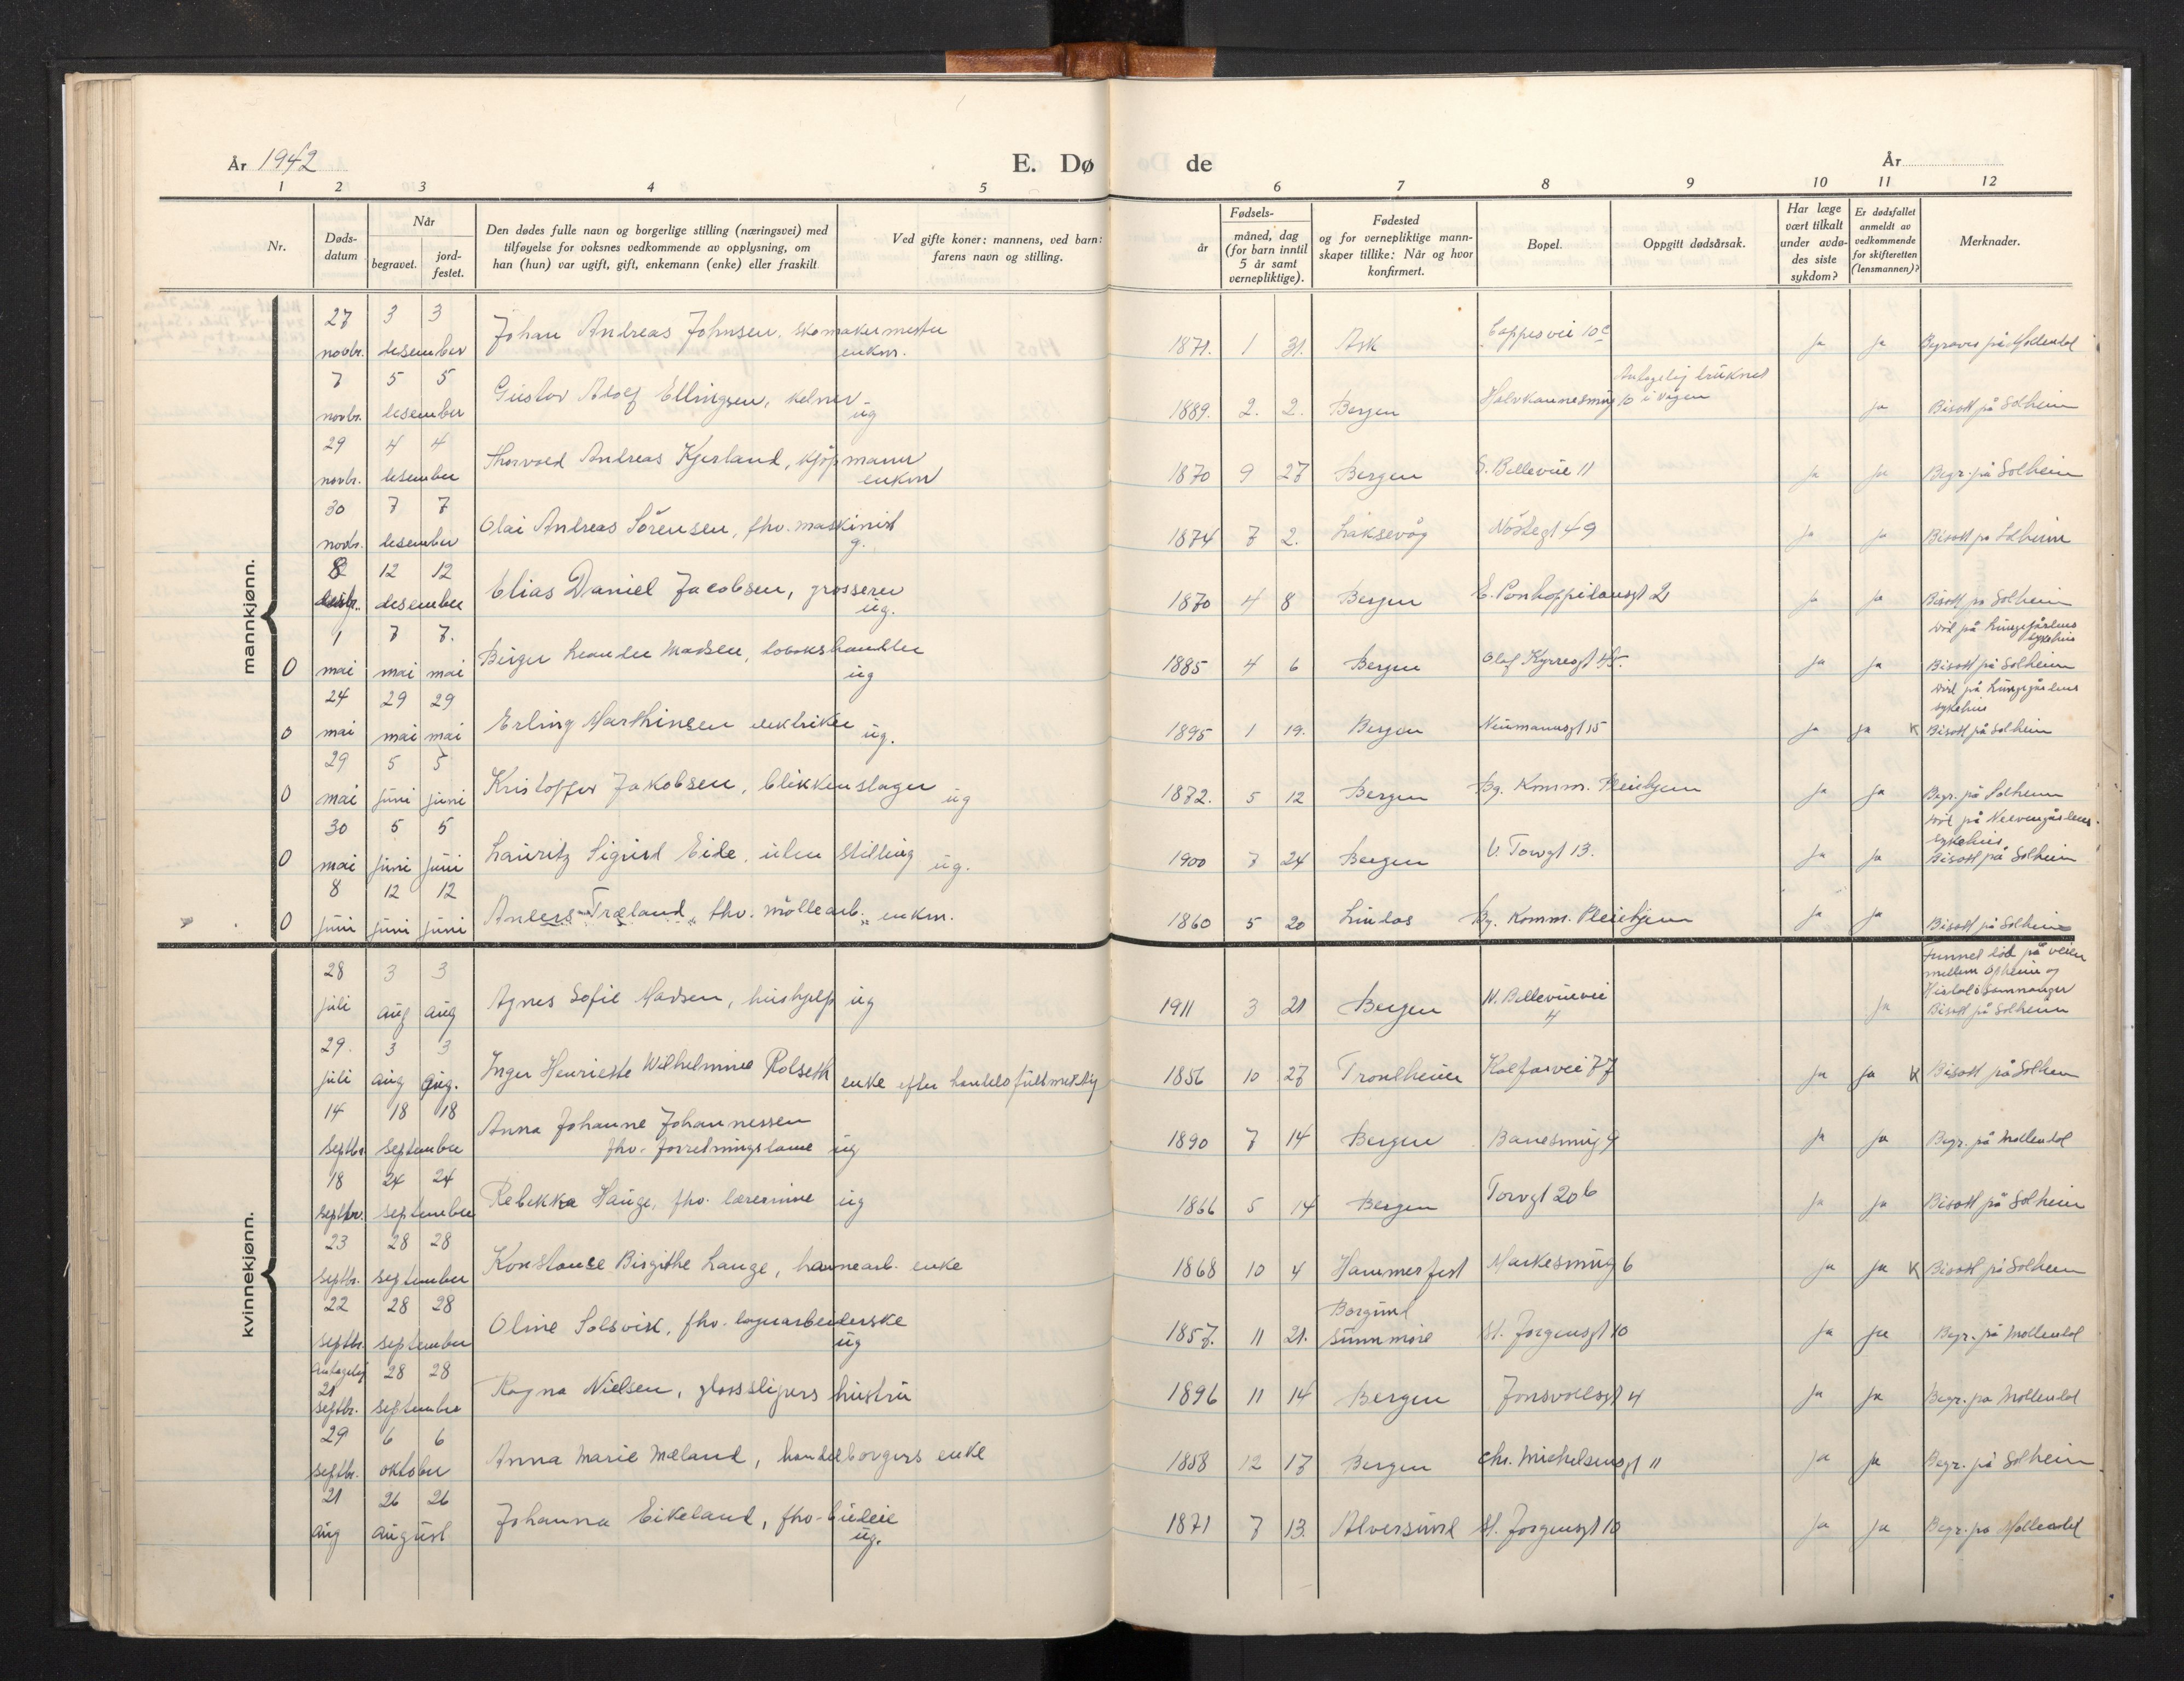 År 1942
E. Døde
År
1 2 3 4 5 6 7 8 9 10 11 12
Nr.
Døds-datum
Når
begravet.
jord-festet.
Den dødes fulle navn og borgerlige stilling (næringsvei) med
tilføyelse for voksnes vedkommende av opplysning, om
han (hun) var ugift, gift, enkemann (enke) eller fraskilt
Ved gifte koner: mannens, ved barn:
farens navn og stilling.
Fødsels-
år
måned, dag
(for barn inntil
5 år samt
vernepliktige).
Fødested
og for vernepliktige mann-
skaper tillike: Når og hvor
konfirmert.
Bopel.
Oppgitt dødsårsak.
Har læge
vært tilkalt
under avdø-
des siste
sykdom?
Er dødsfallet
anmeldt av
vedkommende
for skifteretten
(lensmannen)?
Merknader.
mannkjønn.
27 novbr. 3 3 desember Johan Andreas Johnsen, skomakermester enkm. 1871. 1 31. Ask 10c ja ja Begraves på Møllendal
7 novbr. 5 5 desember Gustav Adolf Ellingsen, kelner ug 1889. 2. 2. Bergen Halvkannesmug 10 Antagelig druknet i Vågen ja Bisatt på Solheim
29 novbr. 4 4 desember Thorvald Andreas Kjerland, kjøpmann enkm 1870 9 27 Bergen S. Bellevue 11 ja ja Begr. på Solheim
30 novbr. 7 7 desember Olai Andreas Sörensen, fhv. maskinist g. 1874 7 2. Laksevåg Nöstegt 49 ja ja Bisatt på Solheim
8 desbr. 12 12 desember Elias Daniel Jacobsen, grosserer ug. 1870 4 8 Bergen E. Pontoppidansgt 2 ja ja Bisatt på Solheim
1 mai 7 7. mai mai Birger Leander Madsen, tobakshandler ug 1885 4 6 Bergen Olaf Kyrresgt ja ja død på Lungegårdens sykehus Bisatt på Solheim
O
24 mai 29 29 mai mai Erling Marthinsen elektriker ug. 1895 1 19. Bergen Neumannsgt 15 ja ja K død på Lungegårdens sykehus Bisatt på Solheim
O
29 mai 5 5 juni juni Kristoffer Jakobsen, blikkenslager ug 1872. 5 12 Bergen Bg. Komm. Pleiehjem ja ja Begr. på Solheim
O
30 mai 5 5 juni juni Lauritz Sigurd Eide, uten stilling ug. 1900 7 24 Bergen V. Torvgt 13. ja ja død på Neevengårdens sykehus Bisatt på Solheim
O
8 juni 12 12 juni juni Anders Træland, fhv. möllearb. enkm. 1860 5 20 Lindås Bg. Komm. Pleiehjem ja ja Bisatt på Solheim
O
kvinnekjønn.
28 juli 3 3 aug aug Agnes Sofie Madsen, hushjelp ug 1911 3 21 Bergen N. Bellevuevei 4 ja Funnet död på veien mellem og i Samnanger Bisatt på Solheim
29. juli 3 3 aug aug. Inger Henriette Wilhelmine Rolseth enke efter handelsfullmektig 1856 10 27 Trondheim Kalfarvei 77 ja ja K Bisatt på Solheim
14 septbr. 18 18 september Anna Johanne Johannessen fhv. forretningsdame ug 1890 7 14 Bergen Banesmug 9 ja ja Begr. på Møllendal
18 septbr. 24 24 september Rebekka Hauge, fhv. lærerinne ug 1866 5 14 Bergen Torvgt 20b ja ja Bisatt på Solheim
23 septbr. 28 28 september Konstanse Birgithe Lange, havnearb. enke 1868 10 4 Hammerfest Markesmug 6 ja ja K Bisatt på Solheim
22 septbr. 28 28 september Oline Solsvik, fhv. lagerarbeiderske ug 1857. 11 21. Borgund Sunnmöre St. Jørgensgt 10 ja ja Begr. på Møllendal
Antagelig 21 septbr. 28 28 september Ragna Nielsen, glassslipers hustru 1896 11 14 Bergen Jonsvollsgt 4 ja ja Begr. på Møllendal
29 septbr. 6 6 oktober Anna Marie Mæland, handelborgers enke 1858 12 17 Bergen Chr. Michelsensgt 11 ja ja Begr. på Solheim
21 aug 26 26 august Johanna Eikeland, fhv. budeie ug. 1871 7 13. Alversund St. Jørgensgt 10 ja ja Begr. på Møllendal